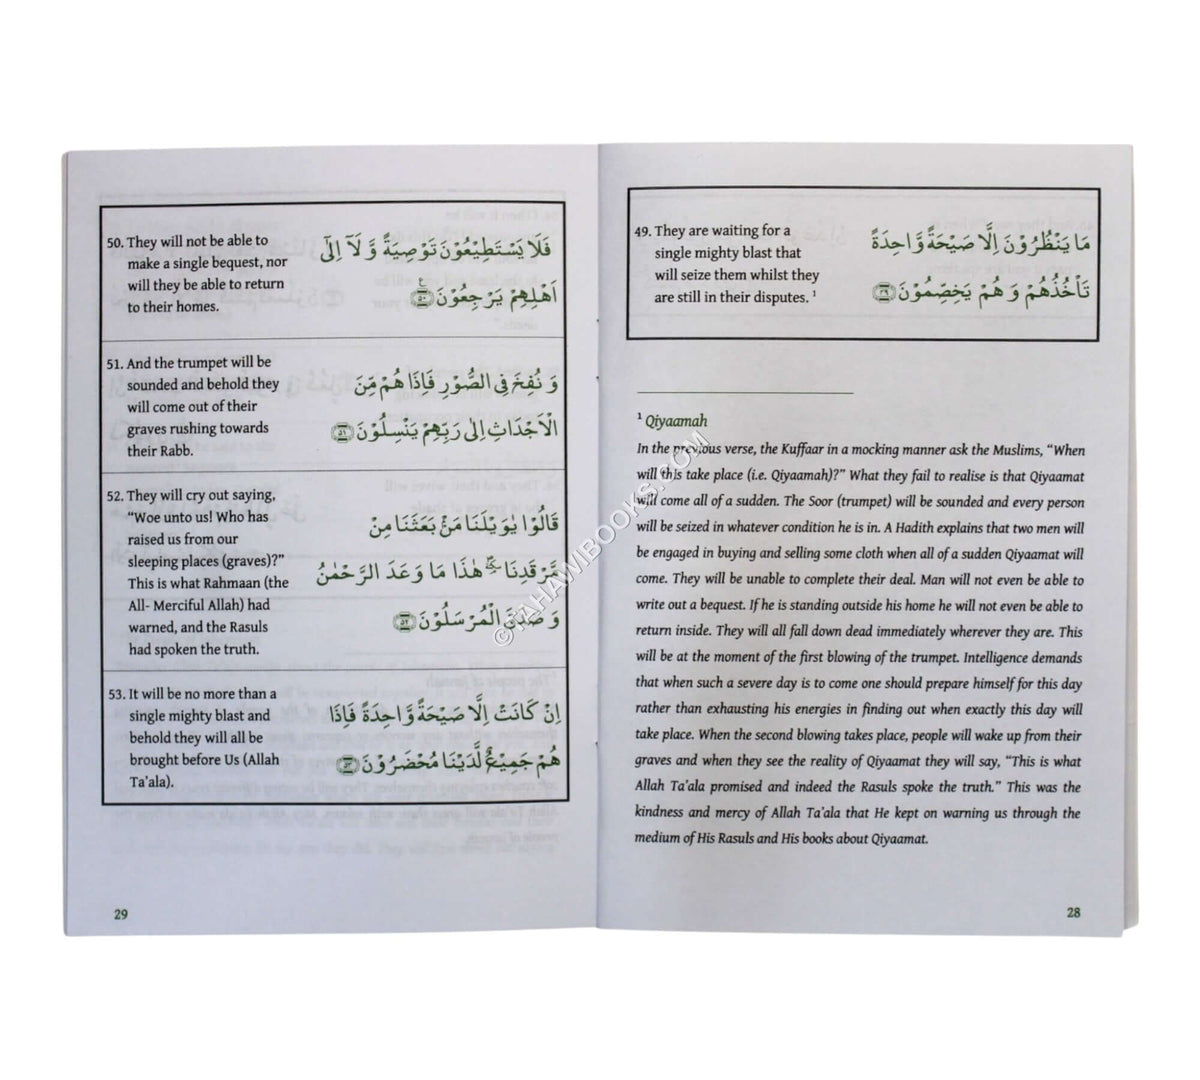 49. They are waiting for a
single mighty blast that
will seize them whilst they
are still in their disputes. ¹
مَا يَنْظُرُوْنَ اِلَّا صَيْحَةً وَّاحِدَةً
تَاْخُذُهُمْ وَ هُمْ يَخِصِّمُوْنَ ۝۴۹
¹ Qiyaamah
In the previous verse, the Kuffaar in a mocking manner ask the Muslims, “When
will this take place (i.e. Qiyaamah)?” What they fail to realise is that Qiyaamat
will come all of a sudden. The Soor (trumpet) will be sounded and every person
will be seized in whatever condition he is in. A Hadith explains that two men will
be engaged in buying and selling some cloth when all of a sudden Qiyaamat will
come. They will be unable to complete their deal. Man will not even be able to
write out a bequest. If he is standing outside his home he will not even be able to
return inside. They will all fall down dead immediately wherever they are. This
will be at the moment of the first blowing of the trumpet. Intelligence demands
that when such a severe day is to come one should prepare himself for this day
rather than exhausting his energies in finding out when exactly this day will
take place. When the second blowing takes place, people will wake up from their
graves and when they see the reality of Qiyaamat they will say, “This is what
Allah Ta’ala promised and indeed the Rasuls spoke the truth.” This was the
kindness and mercy of Allah Ta’ala that He kept on warning us through the
medium of His Rasuls and His books about Qiyaamat.
28
50. They will not be able to
make a single bequest, nor
will they be able to return
to their homes.
فَلَا يَسْتَطِيْعُوْنَ تَوْصِيَةً وَّ لَاۤ اِلٰۤى
اَهْلِهِمْ يَرْجِعُوْنَ ۝۵۰
51. And the trumpet will be
sounded and behold they
will come out of their
graves rushing towards
their Rabb.
وَ نُفِخَ فِى الصُّوْرِ فَاِذَا هُمْ مِّنَ
الْاَجْدَاثِ اِلٰى رَبِّهِمْ يَنْسِلُوْنَ ۝۵۱
52. They will cry out saying,
“Woe unto us! Who has
raised us from our
sleeping places (graves)?”
This is what Rahmaan (the
All- Merciful Allah) had
warned, and the Rasuls
had spoken the truth.
قَالُوْا يٰوَيْلَنَا مَنْۢ بَعَثَنَا مِنْ
مَّرْقَدِنَا ۘ هٰذَا مَا وَعَدَ الرَّحْمٰنُ
وَ صَدَقَ الْمُرْسَلُوْنَ ۝۵۲
53. It will be no more than a
single mighty blast and
behold they will all be
brought before Us (Allah
Ta’ala).
اِنْ كَانَتْ اِلَّا صَيْحَةً وَّاحِدَةً فَاِذَا
هُمْ جَمِيْعٌ لَّدَيْنَا مُحْضَرُوْنَ ۝۵۳
29
©TAHAWIBOOKS.COM